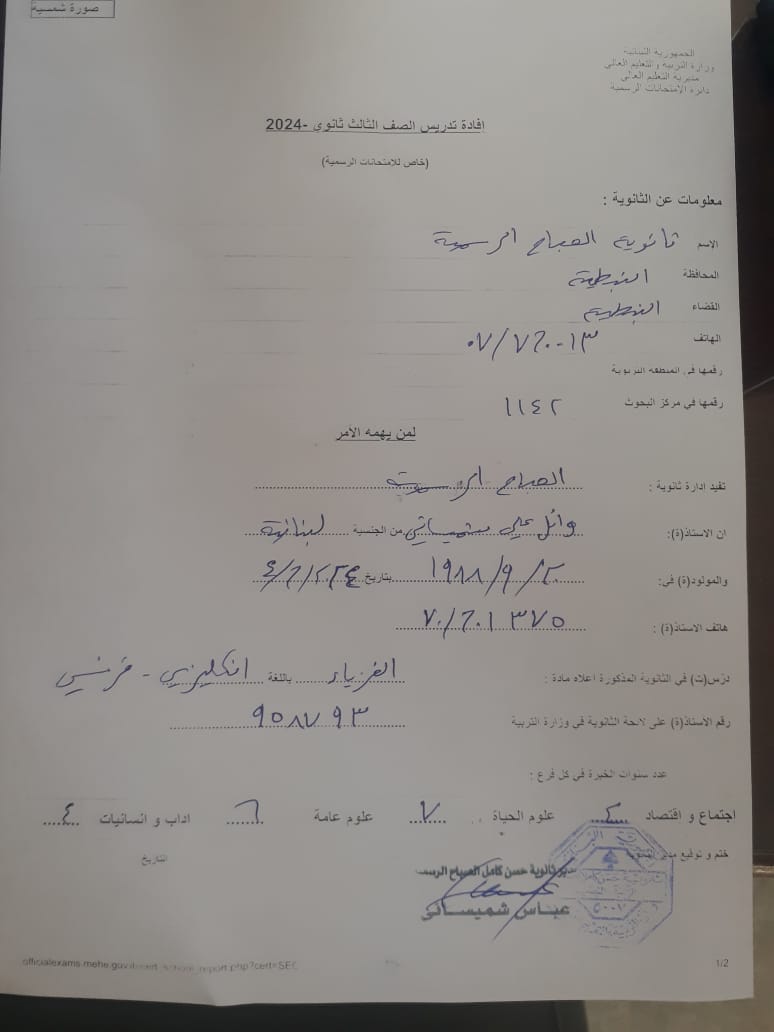 صورة شمسية
الجمهورية اللبنانية
وزارة التربية والتعليم العالي
مديرية التعليم العالي
دائرة الامتحانات الرسمية
إفادة تدريس الصف الثالث ثانوي -2024
(خاص للامتحانات الرسمية)
معلومات عن الثانوية :
الاسم ثانوية الصباح الرسمية
المحافظة النبطية
القضاء النبطية
الهاتف ٠٧/٧٦٠٠١٣
رقمها في المنطقة التربوية
رقمها في مركز البحوث ١١٤٢
لمن يهمه الأمر
تفيد ادارة ثانوية : الصباح الرسمية
ان الاستاذ(ة): وائل علي شميساني من الجنسية لبنانية
والمولود(ة) في: ١٩٨٨/٩/٢٠ بتاريخ
هاتف الاستاذ(ة) : ٧٠/٦٠١٣٧٥
درّس(ت) في الثانوية المذكورة اعلاه مادة : الفزياء باللغة انكليزي - فرنسي
رقم الأستاذ(ة) على لائحة الثانوية في وزارة التربية ٩٥٨٧٩٣
عدد سنوات الخبرة في كل فرع :
اجتماع و اقتصاد علوم الحياة ٧ علوم عامة ٦ اداب و انسانيات ٤
ختم و توقيع مدير الثانوية التاريخ
مدير ثانوية حسن كامل الصباح الرسمية
عباس شميساني
٥٠٠٧
1/2